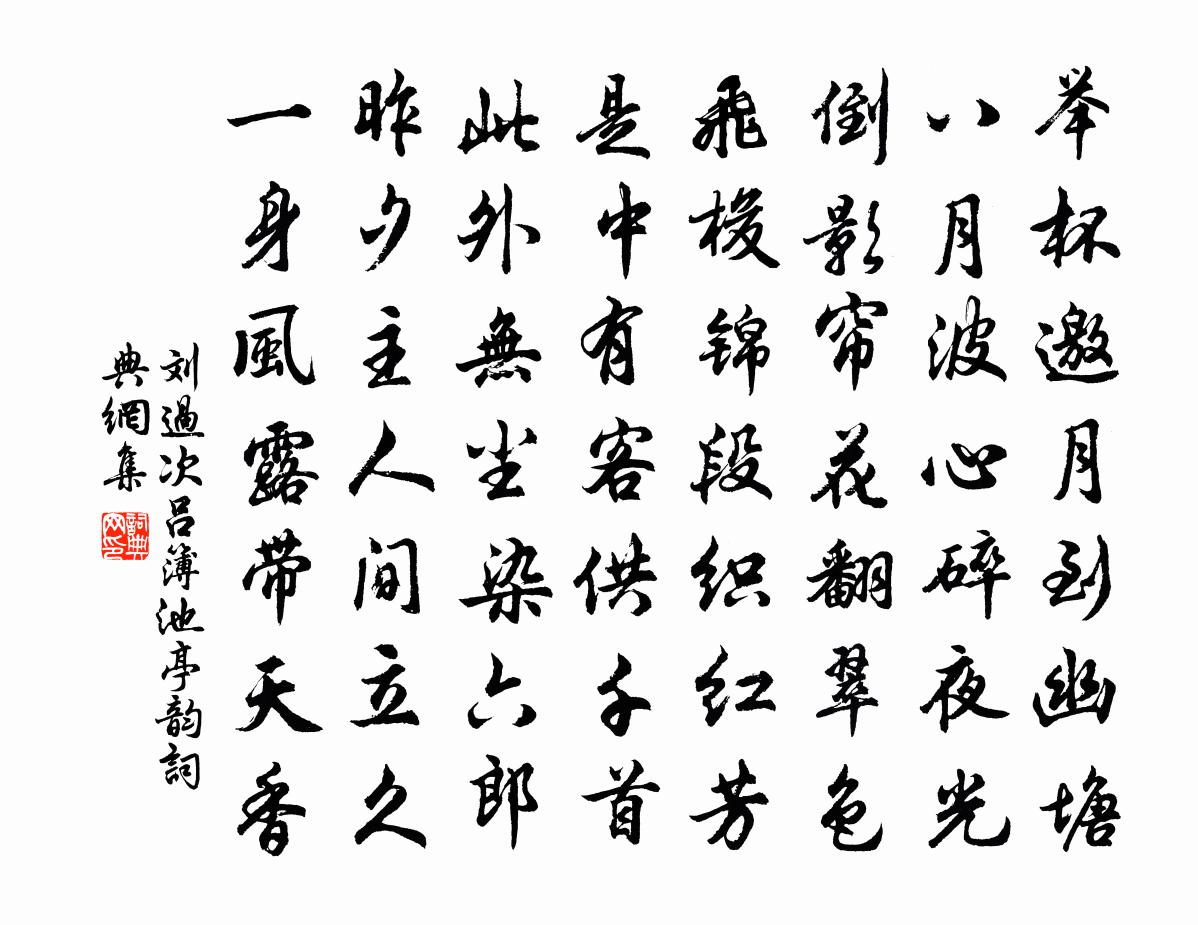 举杯邀月到幽塘
八月波心碎夜光
倒影帘花翻翠色
飛梭锦段织红芳
是中有客供千首
此外無尘染六郎
昨夕主人间立久
一身風露带天香
刘過次吕簿池亭韵詞
典網集
詞典网印